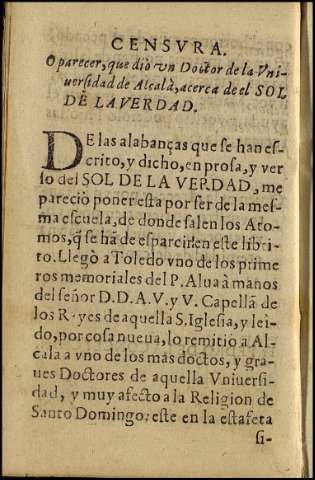 CENSVRA.
O parecer, que diò vn Doctor de la Vni-
uersidad de Alcalà, acerca de el SOL
DE LA VERDAD.
DE las alabanças que se han es-
crito, y dicho, en prosa, y ver
so del SOL DE LA VERDAD, me
pareciò poner esta por ser de la mes-
ma escuela, de donde salen los Ato-
mos, q̃ se hã de esparcir en este libri-
to. Llegò a Toledo vno de los prime
ros memoriales del P. Alua à manos
del señor D. D. A. V. y V. Capellã de
los Reyes de aquella S. Iglesia, y lei-
do, por cosa nueua, lo remitio a Al-
cala a vno de los mas doctos, y gra-
ues Doctores de aquella Vniuersi-
dad, y muy afecto a la Religion de
Santo Domingo: este en la estafeta
si-